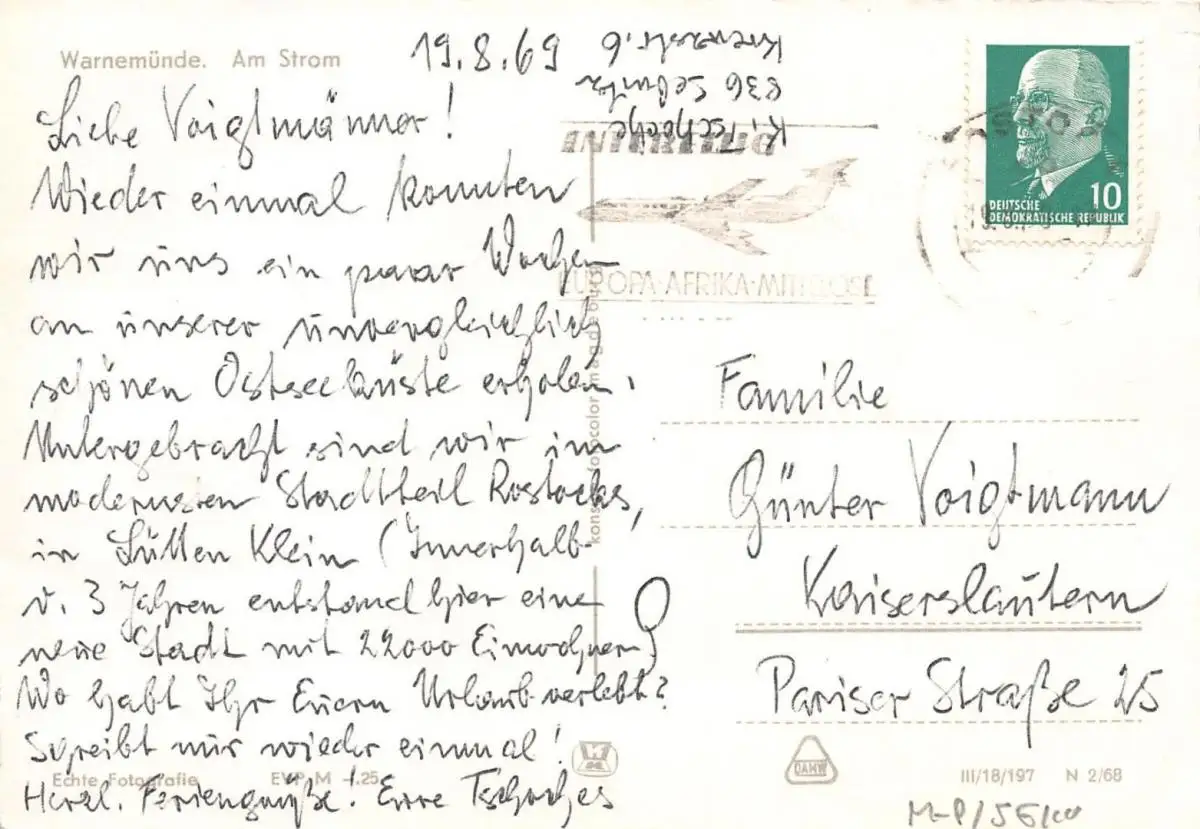 Warnemünde. Am Strom
19.8.69
K. Tschoche
836 Sebnitz
Kreuzstr. 6
Liebe Voigtmänner!
Wieder einmal konnten
wir uns ein paar Wochen
an unserer unvergleichlich
schönen Ostseeküste erholen.
Untergebracht sind wir im
modernsten Stadtteil Rostocks,
in Lütten Klein (Innerhalb
v. 3 Jahren entstand hier eine
neue Stadt mit 22000 Einwohnern)
Wo habt Ihr Euern Urlaub verlebt?
Schreibt mir wieder einmal!
Herzl. Feriengrüße! Eure Tschoches
Echte Fotografie EVP M -.25
konsum fotocolor magdeburg
INTERFLUG
EUROPA·AFRIKA·MITTELOST
DEUTSCHE
DEMOKRATISCHE REPUBLIK
10
Familie
Günter Voigtmann
Kaiserslautern
Pariser Straße 25
DAMW
III/18/197 N 2/68